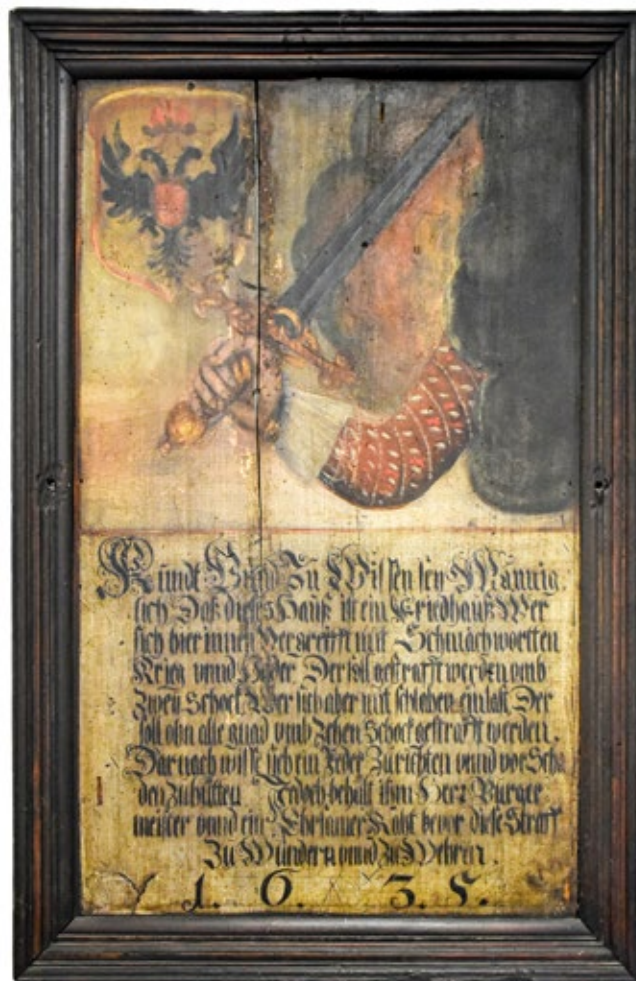 Kundt Vund Zu Wissen sey Männig
lich Daß dieses Hauß ist ein Friedhauß Wer
sich hier innen Vergreifft mit Schmächwortten
Krieg vnnd Hader Der soll gestrafft werden vmb
Zwey Schock Wer sich aber mit schlehen einlast Der
soll ohn alle gnad vmb Zehen Schock gestrafft werden.
Darnach wisse sich ein Jeder Zurichten vnnd vor Scha
den Zuhütten Jedoch behält ihm Herr Burger
meister vnnd ein Ehrsamer Raht bevor diese Straff
Zu Mindern vnnd Zu Mehren.
1. 6. 3. 5.